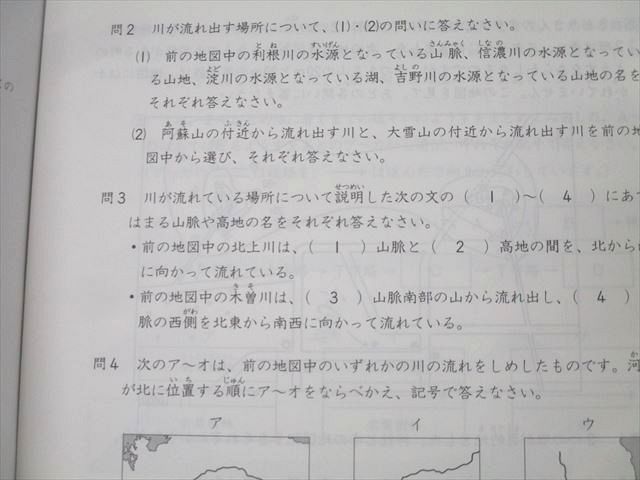 の
問2 川が流れ出す場所について、(1)・(2)の問いに答えなさい。
(1) 前の地図中の利根川の水源となっている山脈、信濃川の水源となってい
る山地、淀川の水源となっている湖、吉野川の水源となっている山地の名を
それぞれ答えなさい。
(2) 阿蘇山の付近から流れ出す川と、大雪山の付近から流れ出す川を前の地
図中から選び、それぞれ答えなさい。
問3 川が流れている場所について説明した次の文の( 1 )～( 4 )にあて
はまる山脈や高地の名をそれぞれ答えなさい。
・前の地図中の北上川は、( 1 )山脈と( 2 )高地の間を、北から
に向かって流れている。
・前の地図中の木曽川は、( 3 )山脈南部の山から流れ出し、( 4 )
脈の西側を北東から南西に向かって流れている。
問4 次のア～オは、前の地図中のいずれかの川の流れをしめしたものです。河
が北に位置する順にア～オをならべかえ、記号で答えなさい。
ア イ ウ